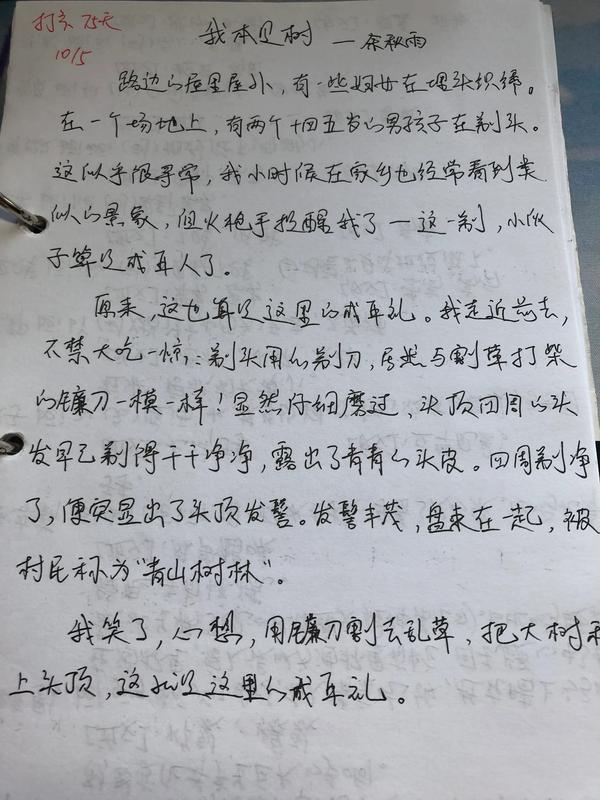 打卡 75天
10/5
我本是树 —余秋雨
路边的屋里屋外，有一些妇女在埋头织绣。
在一个场地上，有两个十四五岁的男孩子在剃头。
这似乎很寻常，我小时候在家乡也经常看到类
似的景象，但火枪手提醒我了—这一剃，小伙
子算是成年人了。
原来，这也算是这里的成年礼。我走近前去，
不禁大吃一惊：剃头用的剃刀，居然与割草打柴
的镰刀一模一样！显然仔细磨过，头顶四周的头
发早已剃得干干净净，露出了青青的头皮。四周剃净
了，便突显出了头顶发髻。发髻丰茂，盘束在一起，被
村民称为“青山树林”。
我笑了，心想，用镰刀割去乱草，把大树
上头顶，这就是这里的成年礼。